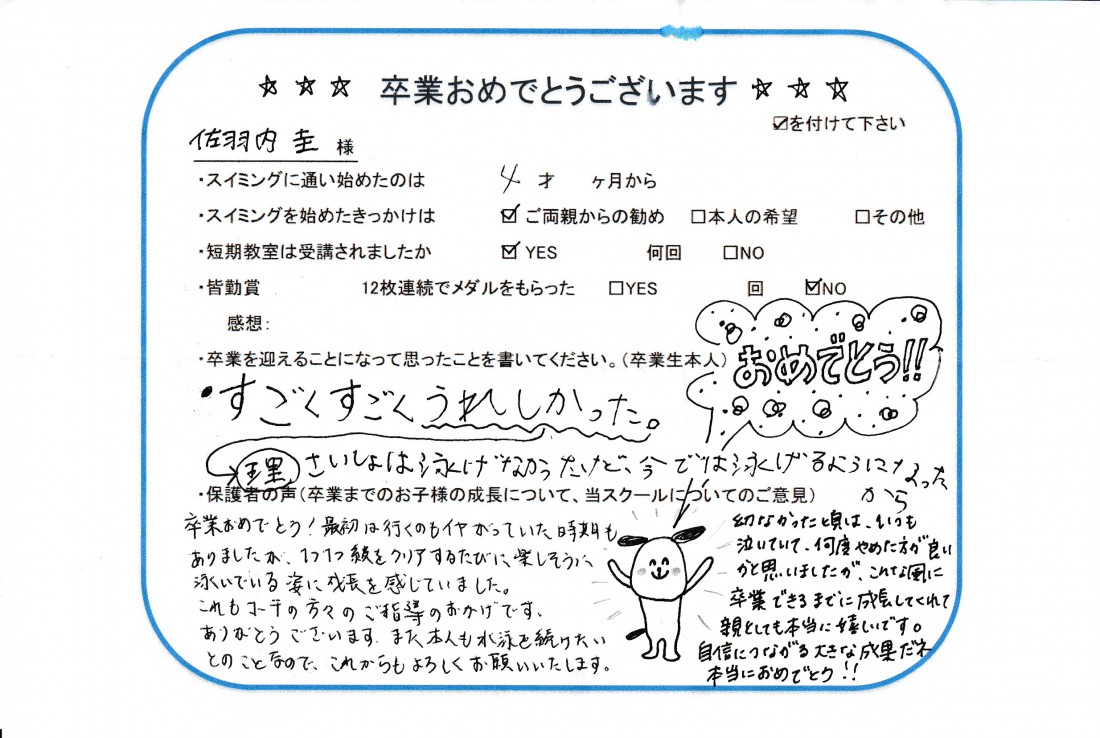 ☆ ☆ ☆ 卒業おめでとうございます ☆ ☆ ☆
☑を付けて下さい
佐羽内 圭 様
・スイミングに通い始めたのは 4 才 ヶ月から
・スイミングを始めたきっかけは ☑ご両親からの勧め □本人の希望 □その他
・短期教室は受講されましたか ☑YES 何回 □NO
・皆勤賞 12枚連続でメダルをもらった □YES 回 ☑NO
感想:
・卒業を迎えることになって思ったことを書いてください。(卒業生本人)
おめでとう!!
・すごくすごくうれしかった。
理 さいしょは泳げなかったけど、今では泳げるようになった
から
・保護者の声(卒業までのお子様の成長について、当スクールについてのご意見)
卒業おめでとう!最初は行くのもイヤがっていた時期も
ありましたが、1つ1つ級をクリアするたびに、楽しそうに
泳いでいる姿に成長を感じていました。
これもコーチの方々のご指導のおかげです。
ありがとうございます。また本人も水泳を続けたい
とのことなので、これからもよろしくお願いいたします。
幼なかった頃は、いつも
泣いていて、何度やめた方が良い
かと思いましたが、こんな風に
卒業できるまでに成長してくれて
親としても本当に嬉しいです。
自信につながる大きな成果だネ
本当におめでとう!!